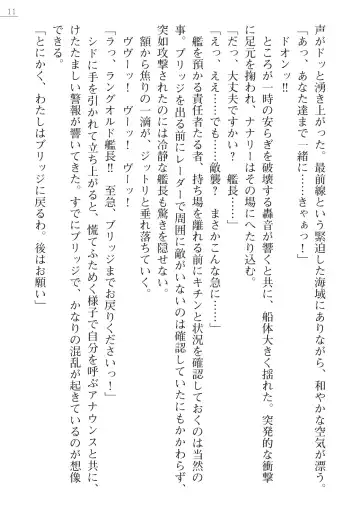 11
声がドッと湧き上がった。最前線という緊迫した海域にありながら、和やかな空気が漂う。
「あっ、あなた達まで　一緒に……きゃぁっ！」
ドオンッ!!
ところが一時の安らぎを破壊する轟音が響くと共に、船体大きく揺れた。突発的な衝撃
に足元を掬われ、ナナリーはその場にへたり込む。
「だっ、大丈夫ですかい？　艦長……」
「えっ、ええ……でも、敵襲？　まさかこんな急に……」
艦を預かる責任者たる者、持ち場を離れる前にキチンと状況を確認しておくのは当然の
事。ブリッジを出る前にレーダーで周囲に敵がいないのは確認していたにもかかわらず、
突如攻撃されたのには冷静な艦長も驚きを隠せない。
額から焦りの一滴が、ジットリと垂れ落ちていく。
ヴヴーッ！　ヴーッ！　ヴーッ！
「ラっ、ラングオルド艦長!!　至急、ブリッジまでお戻りくださいっ！」
シドに手を引かれて立ち上がると、慌てふためく様子で自分を呼ぶアナウンスと共に、
けたたましい警報が響いてきた。すでにブリッジで、かなりの混乱が起きているのが想像
できる。
「とにかく、わたしはブリッジに戻るわ。後はお願い」